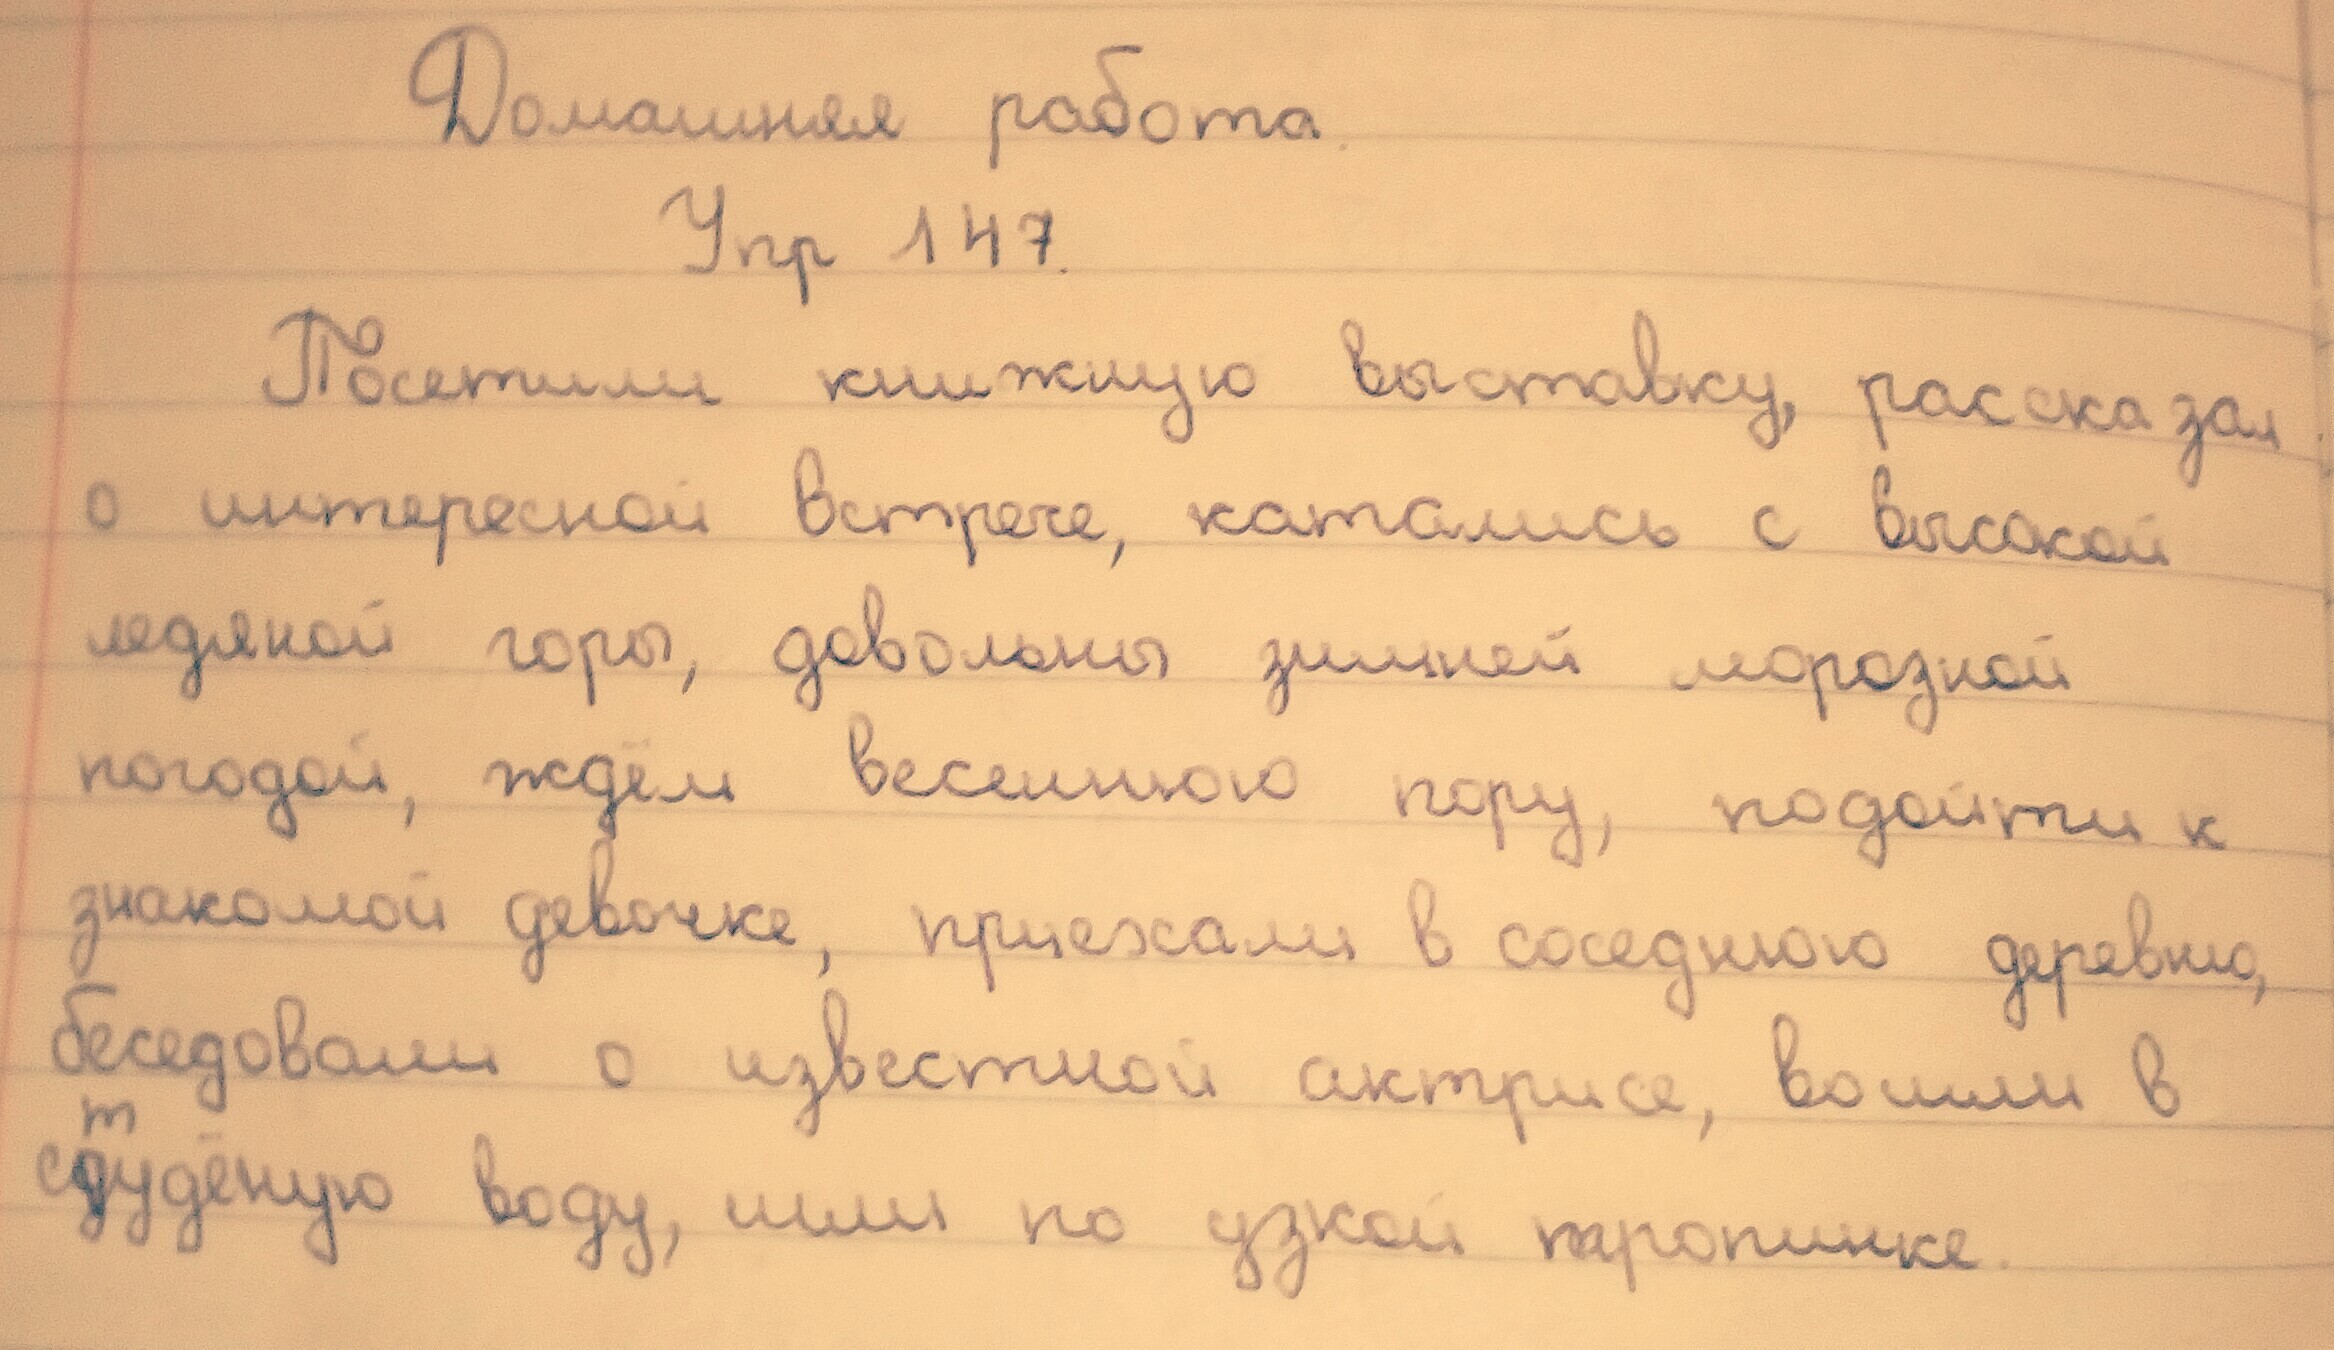 Домашняя работа.
Упр 147.
Посетили книжную выставку, рассказал
о интересной встрече, катались с высокой
ледяной горы, довольны зимней морозной
погодой, ждём весеннюю пору, подойти к
знакомой девочке, приехали в соседнюю деревню,
беседовали о известной актрисе, вошли в
студёную воду, шли по узкой тропинке.